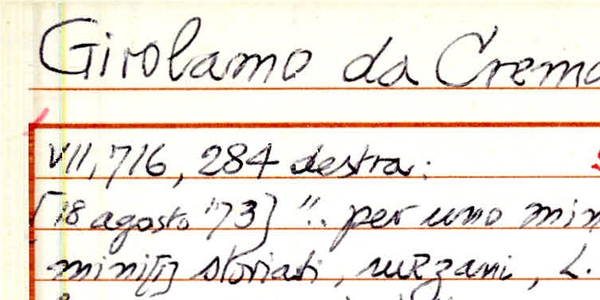 Girolamo da Crem
VII, 716, 284 destra:
[18 agosto '73] ".. per uno min
mini[i] storiati, mezzani, L.